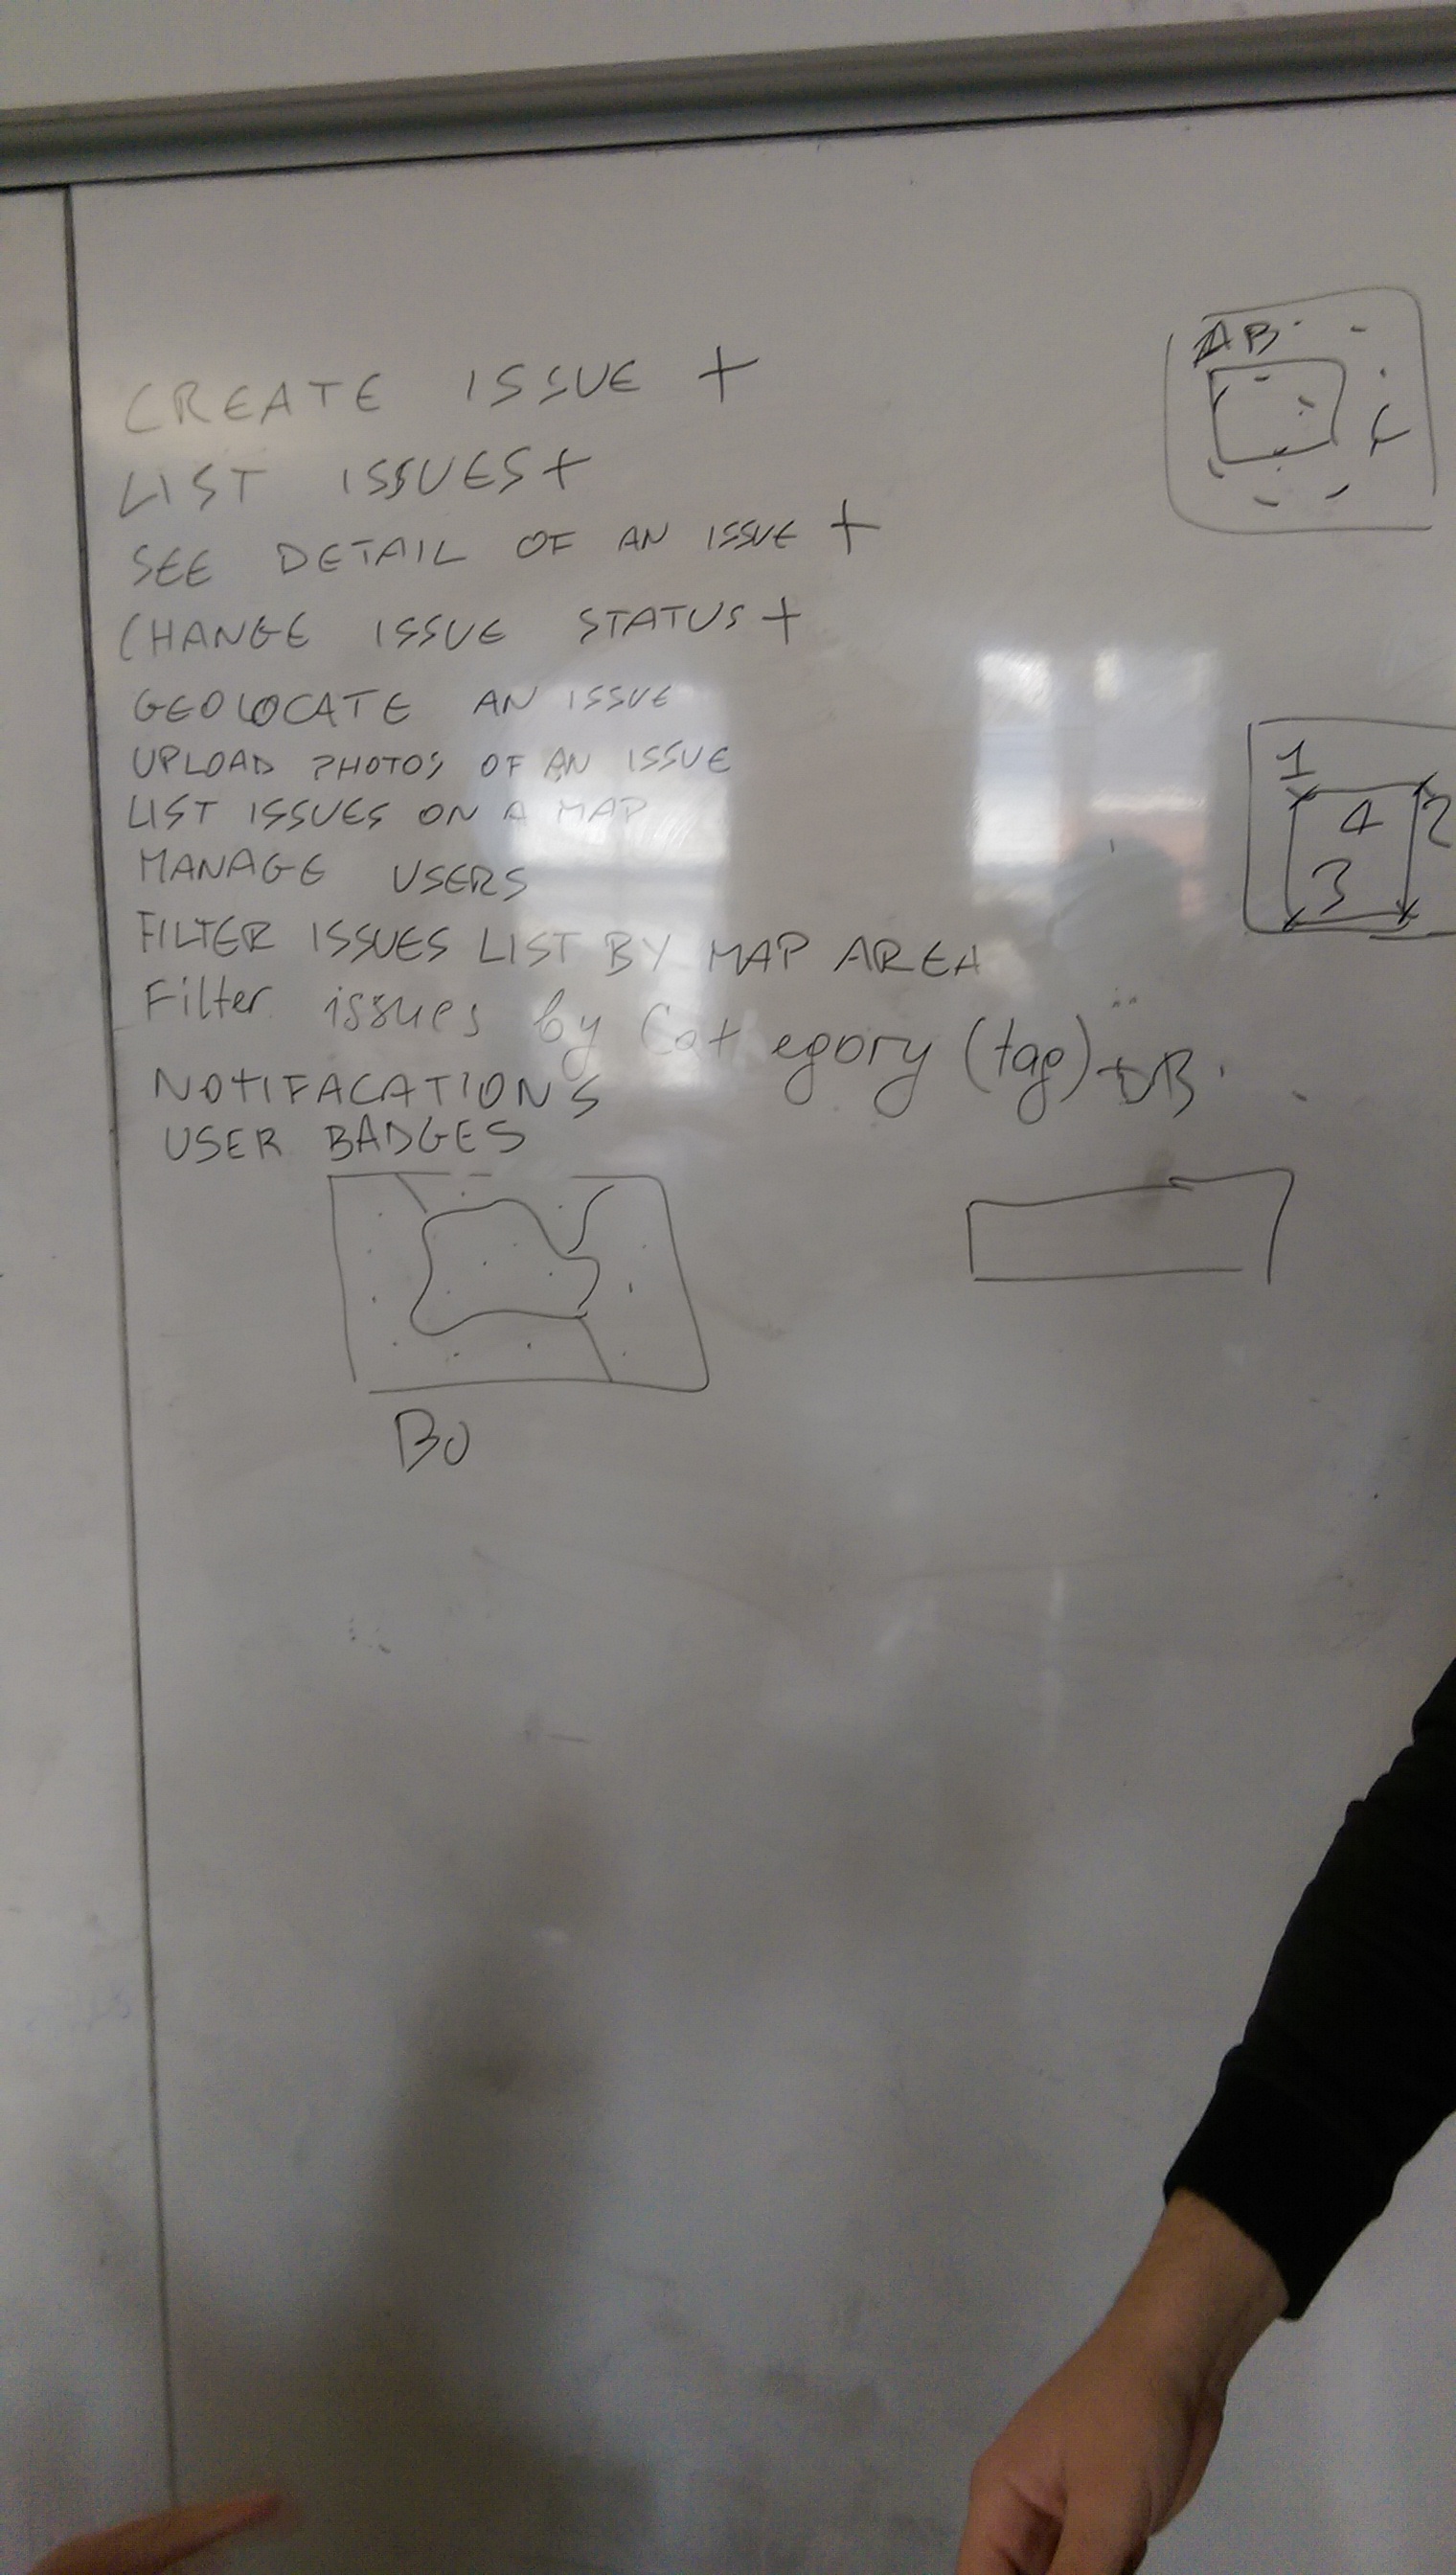 CREATE ISSUE +
LIST ISSUES +
SEE DETAIL OF AN ISSUE +
CHANGE ISSUE STATUS +
GEOLOCATE AN ISSUE
UPLOAD PHOTOS OF AN ISSUE
LIST ISSUES ON A MAP
MANAGE USERS
FILTER ISSUES LIST BY MAP AREA
Filter issues by Category (tag)
NOTIFACATIONS
USER BADGES
AB
1
4
2
3